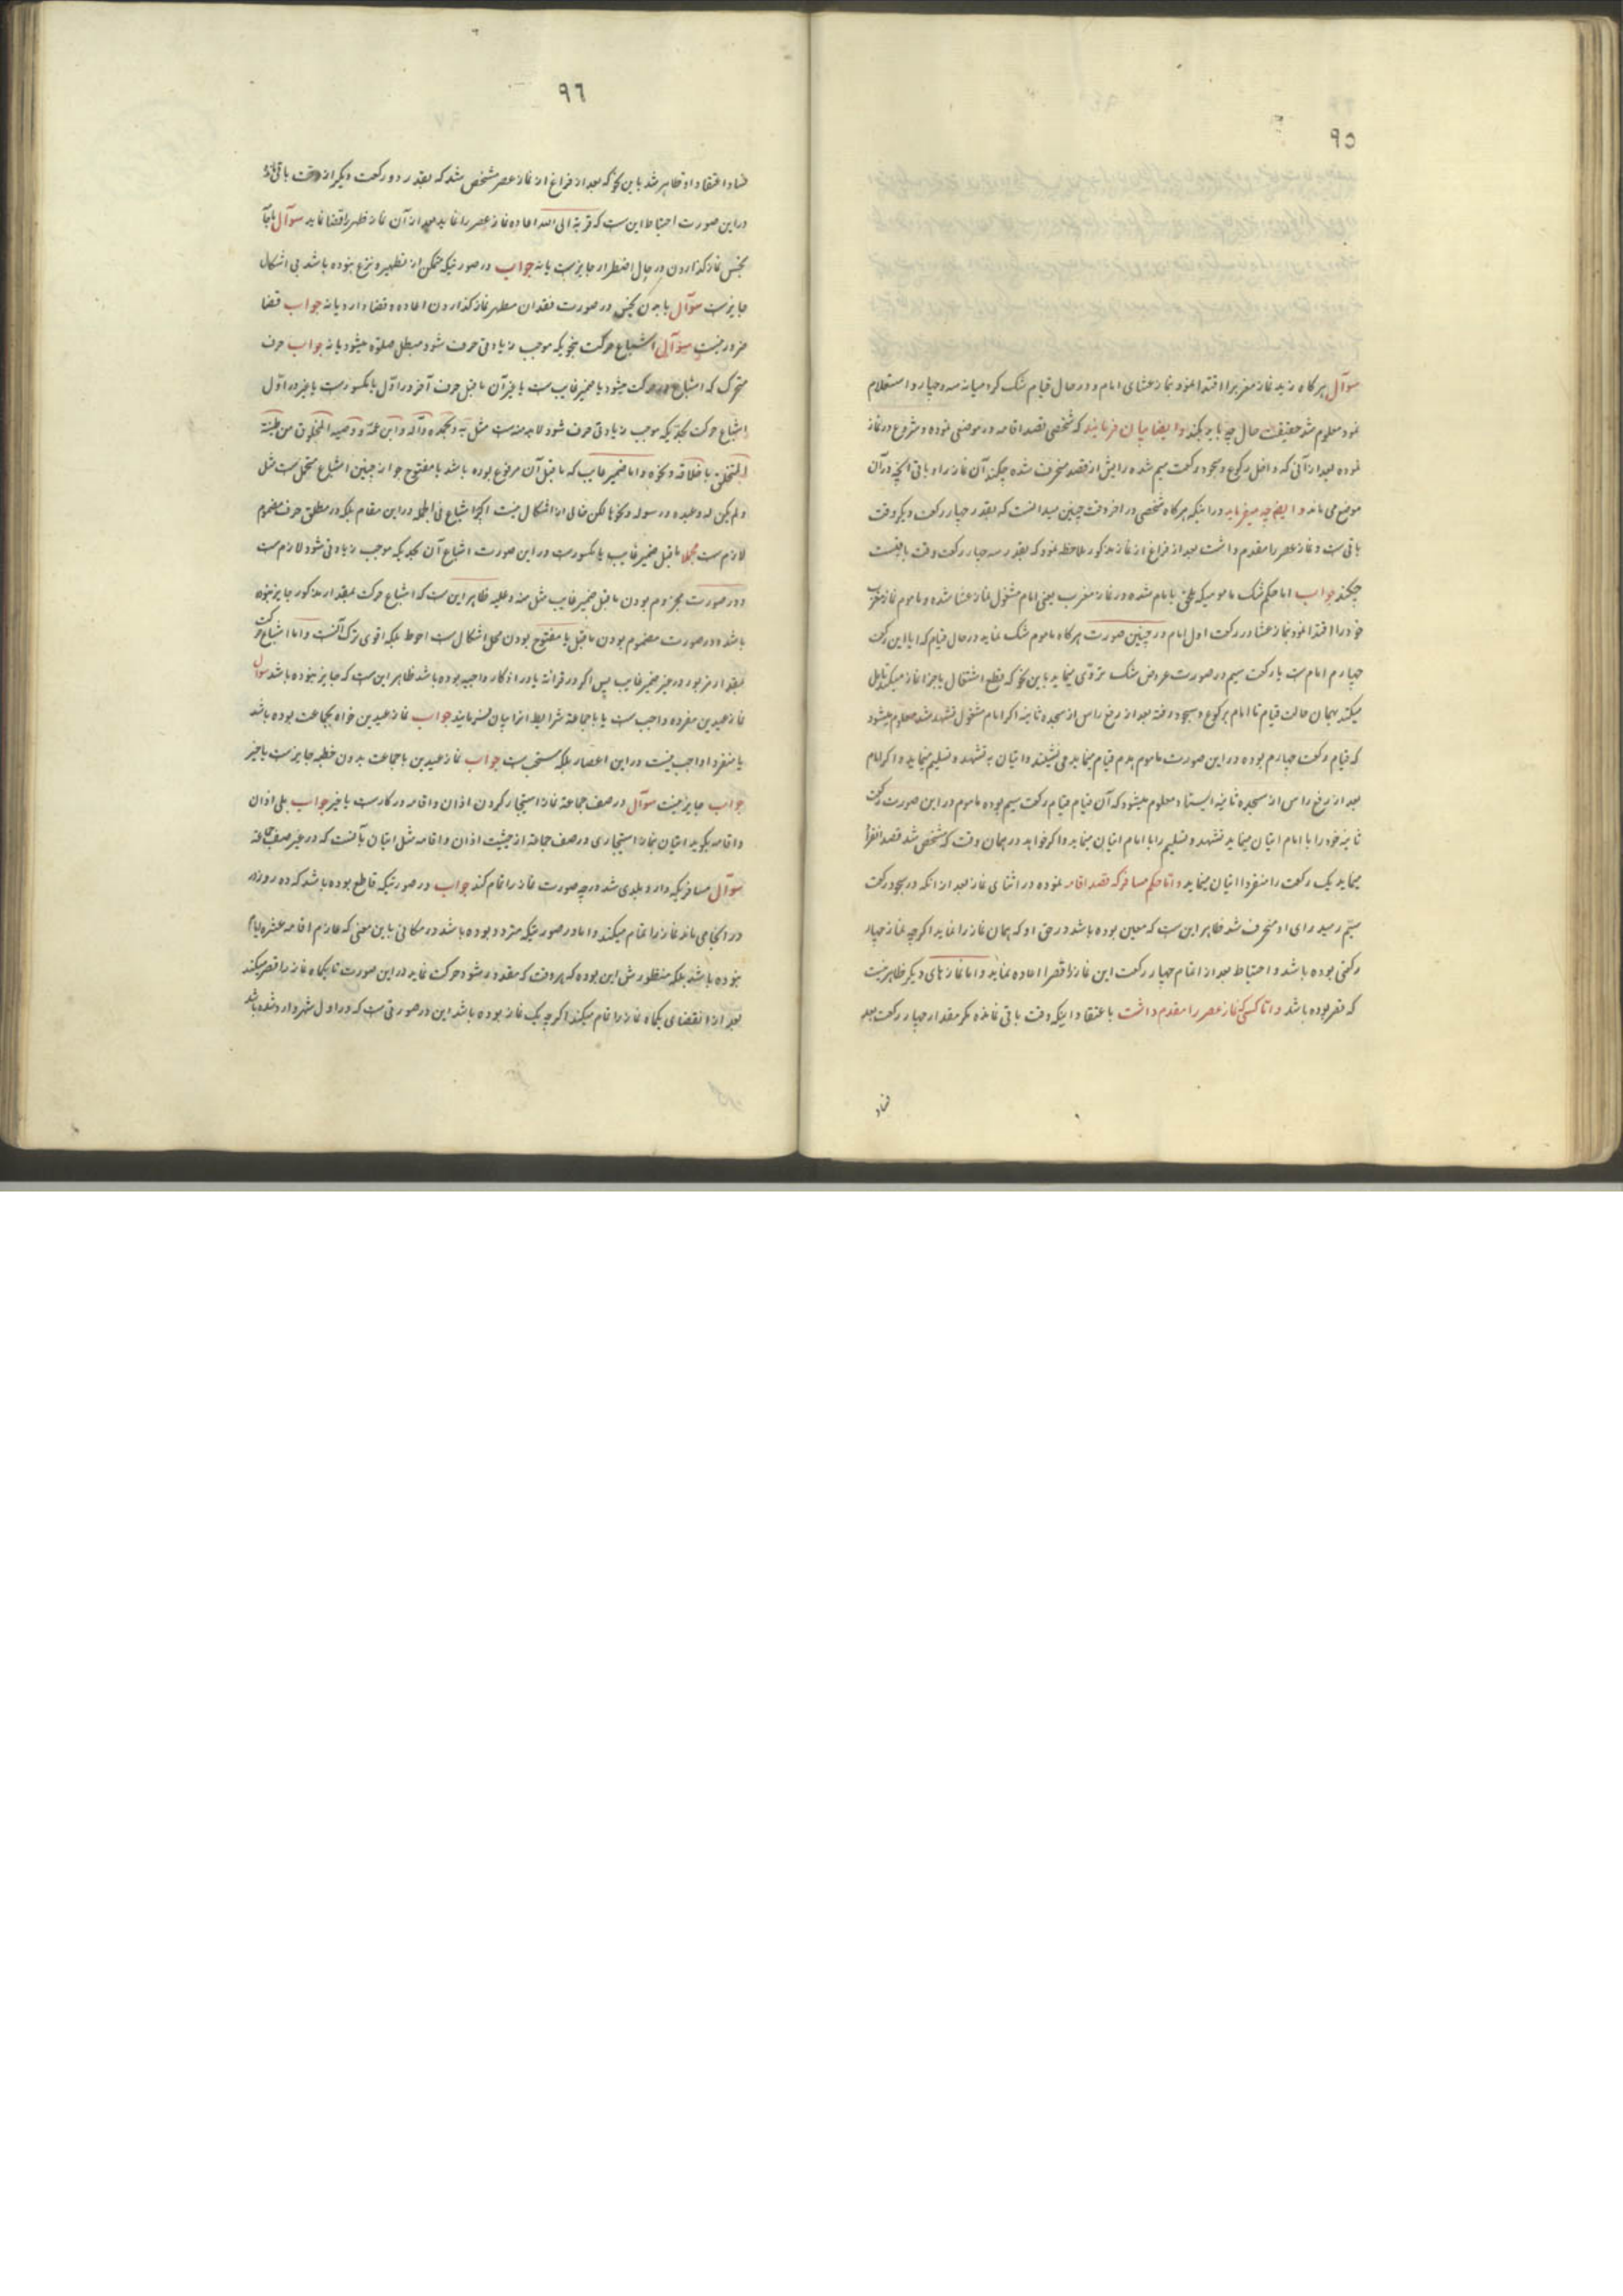 ٩٥
سوآل هر کاه زید نماز مغرب را اقتدا نمود بنماز عشای امام و در حال قیام شک کرد میانه سه و چهار و استعلام
نمود معلوم شد حقیقت حال چه باید بکند و ایضا بیان فرمایند که شخصی قصد اقامه در موضعی نموده و شروع در نماز
نموده بعد از آنی که داخل رکوع و سجود رکعت سیم شده رایش از قصد منحرف شده چکند آن نماز را و باقی آنچه در آن
موضع می ماند و ایضا چه میفرمایند در اینکه هر کاه شخصی در اخر وقت چنین میدانست که بقدر چهار رکعت دیگر وقت
باقی است و نماز عصر را مقدم داشت بعد از فراغ از نماز مذکور ملاحظه نمود که بقدر سه چهار رکعت وقت باقیست
چکند جواب اما حکم شک مامومیکه ملحق بامام شده در نماز مغرب یعنی امام مشغول نماز عشا شده و ماموم نماز مغرب
خود را اقتدا نمود بنماز عشا در رکعت اول امام در چنین صورت هر کاه ماموم شک نماید در حال قیام که ایا این رکعت
چهارم امام است یا رکعت سیم در صورت عروض شک تروّی مینماید باین نحو که قطع اشتغال باجزا نماز میکند تامل
میکند بهمان حالت قیام تا امام برکوع و سجود رفته بعد از رفع راس از سجده ثانیه اکر امام مشغول تشهد شد معلوم میشود
که قیام رکعت چهارم بوده در این صورت ماموم هدم قیام مینماید می نشیند و اتیان به تشهد و تسلیم مینماید و اکر امام
بعد از رفع راس از سجده ثانیه ایستاد معلوم میشود که آن قیام قیام رکعت سیم بوده ماموم در این صورت رکعت
ثانیه خود را با امام اتیان مینماید تشهد و تسلیم را با امام اتیان مینماید و اکر خواهد در همان وقت که مشخص شد قصد انفراد
مینماید یک رکعت را منفردا اتیان مینماید و اما حکم مسافر که قصد اقامه نموده در اثنای نماز بعد از انکه در سجود رکعت
سیّم رسید رای او منحرف شد ظاهر این است که معین بوده باشد در حق او که همان نماز را نماید اکر چه نماز چهار
رکعتی بوده باشد و احتیاط بعد از اتمام چهار رکعت این نماز را قصرا اعاده نماید و اما نماز های دیگر ظاهر نیست
که قصر بوده باشد و امّا کسی که نماز عصر را مقدم داشت باعتقاد اینکه وقت باقی نمانده مکر مقدار چهار رکعت بعد
فساد
٩٦
فساد اعتقاد او ظاهر شد باین نحو که بعد از فراغ از نماز عصر مشخص شد که بقدر دو رکعت دیگر از وقت باقی
در این صورت احتیاط این است که قربة الی الله اعاده نماز عصر را نماید بعد از آن نماز ظهر را قضا نماید سوآل
نجس نماز کذاردن در حال اضطرار جایز است یا نه جواب در صورتیکه متمکن از تطهیر و نزع نبوده باشد بی اشکال
جایز است سوآل با بدن نجس در صورت فقدان مطهر نماز کذاردن اعاده و قضا دارد یا نه جواب قضا
ضرور نیست سوآل اشباع حرکت بنحویکه موجب زیادتی حرف شود مبطل صلوة میشود یا نه جواب حرف
متحرک که اشباع در حرکت میشود یا ضمیر غایب است یا غیر آن ماقبل حرف آخر در اوّل یا مکسور است یا غیر در اوّل
اشباع حرکت بحدّیکه موجب زیادتی حرف شود لابد منه است مثل به و بحمده و آله و ابن عمّه و وصیه المخلوق من طینته
المتخلق باخلاقه و نحوه و اما ضمیر غایب که ماقبل آن مرفوع بوده باشد یا مفتوح جواز چنین اشباع محتمل است مثل
و لم یکن له و عبده و رسوله و نحوها لکن خالی از اشکال نیست اکر چه اشباع فی الجمله در این مقام بلکه در مطلق حرف مضموم
لازم است مجملا ماقبل ضمیر غایب یا مکسور است در این صورت اشباع آن بحدیکه موجب زیادتی شود لازم است
و در صورت مجزوم بودن ماقبل ضمیر غایب مثل منه و علیه ظاهر این است که اشباع حرکت بمقدار مذکور جایز نبوده
باشد و در صورت مضموم بودن ماقبل یا مفتوح بودن محل اشکال است احوط بلکه اقوی ترک آنست و اما اشباع حرکت
بمقدار مزبور در غیر ضمیر غایب پس اکر در قرائت یا در اذکار واجبه بوده باشد ظاهر این است که جایز نبوده باشد سوآل
نماز عیدین مفرده واجب است یا با جماعة شرایط انرا بیان فرمایند جواب نماز عیدین خواه بجماعت بوده باشد
یا منفردا واجب نیست در این اعصار بلکه مستحب است جواب نماز عیدین با جماعت بدون خطبه جایز است یا خیر
جواب جایز نیست سوآل در صف جماعة نماز استیجار کردن اذان و اقامه در کار است یا خیر جواب بلی اذان
و اقامه بگوید اتیان بنماز استیجاری در صف جماعة از حیثیت اذان و اقامه مثل اتیان بآنست که در غیر صف جماعة
سوآل مسافریکه وارد بلدی شد در چه صورت نماز را تمام کند جواب در صورتیکه قاطع بوده باشد که ده روزه
در انجا می ماند نماز را تمام میکند و اما در صورتیکه متردد بوده باشد در مکانی باین معنی که عازم اقامه عشره ایام
نبوده باشد بلکه منظورش این بوده که هر وقت که مقدور بشود حرکت نماید در این صورت تا یکماه نماز را قصر میکند
بعد از انقضای یکماه نماز را تمام میکند اکر چه یک نماز بوده باشد این در صورتی است که در اول شهر وارد شده باشد